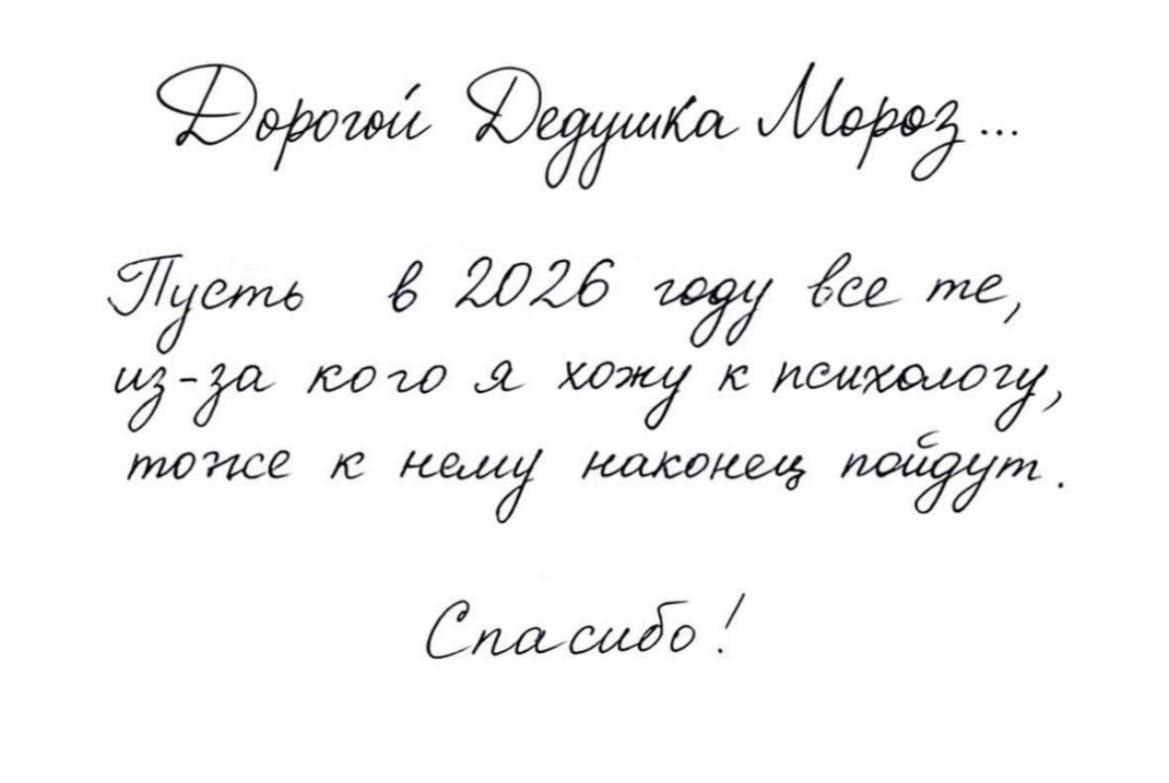 Дорогой Дедушка Мороз...
Пусть в 2026 году все те,
из-за кого я хожу к психологу,
тоже к нему наконец пойдут.
Спасибо!